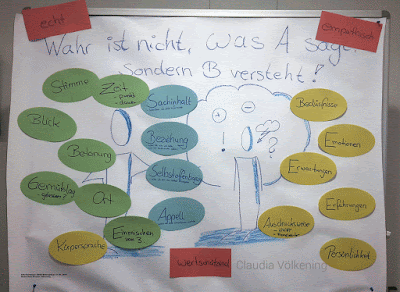 echt
empathisch
Wahr ist nicht, was A sagt,
sondern B versteht!
Stimme
Zeit
Blick
Betonung
Ort
Einmischen
Körpernähe
Sachinhalt
Beziehung
Selbstoffenbarung
Appell
+
-
!
?
Bedürfnisse
Emotionen
Erwartungen
Erfahrungen
Ausdrucksweise
Persönlichkeit
wertschätzend
Claudia Völkening